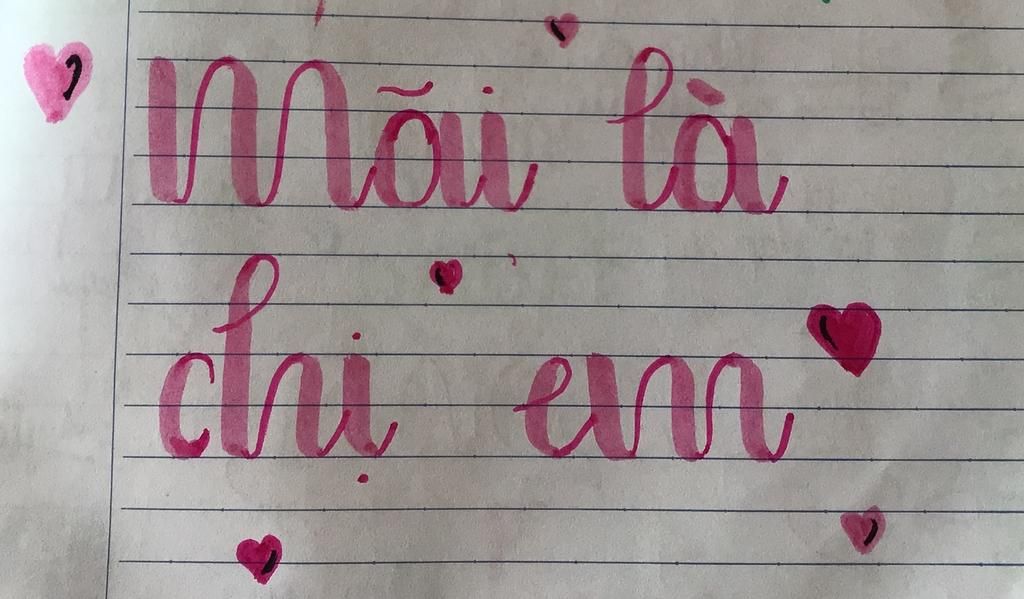 Mãi là
chị em